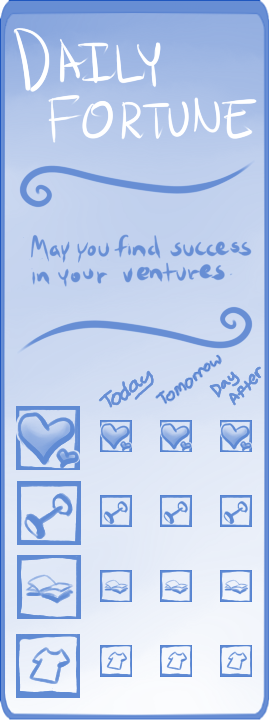 DAILY
FORTUNE
May you find success
in your ventures.
Today
Tomorrow
Day
After